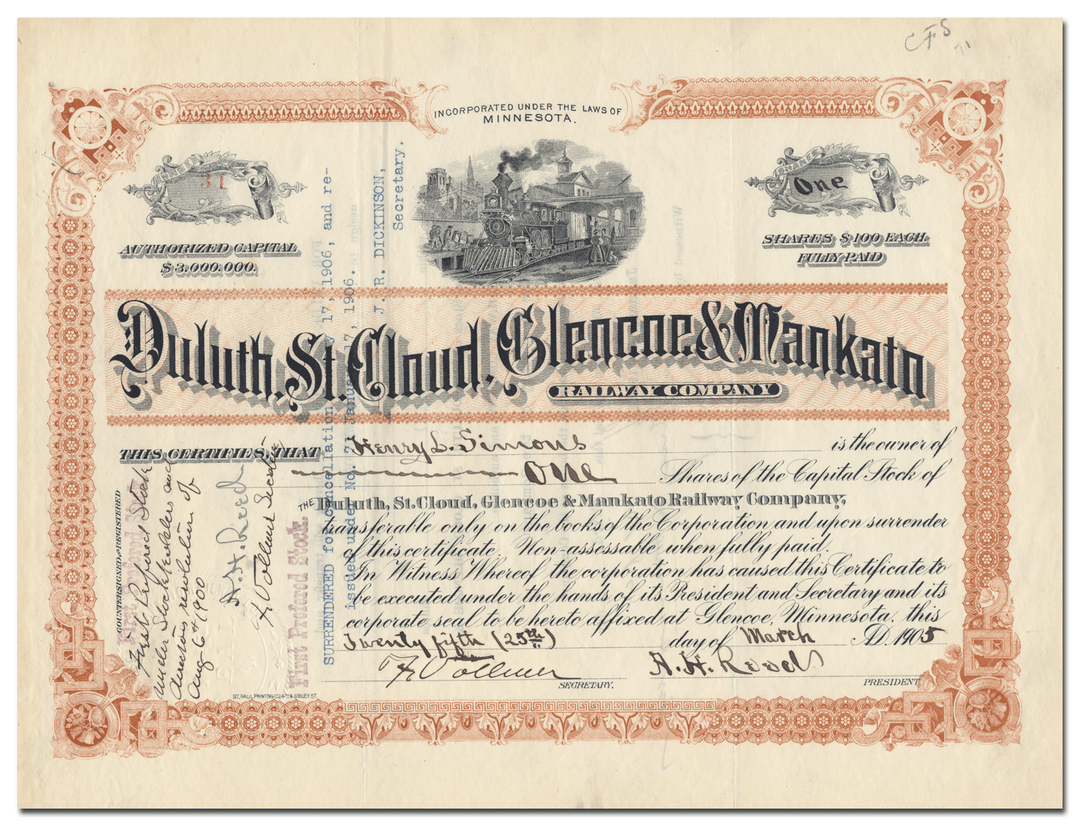 CFS
INCORPORATED UNDER THE LAWS OF
MINNESOTA.
31
SHARES
One
AUTHORIZED CAPITAL
$3,000,000.
SHARES $100 EACH.
FULLY PAID
Duluth, St. Cloud, Glencoe & Mankato
RAILWAY COMPANY
THIS CERTIFIES THAT Henry L. Simons is the owner of
One Shares of the Capital Stock of
THE Duluth, St. Cloud, Glencoe & Mankato Railway Company,
transferable only on the books of the Corporation and upon surrender
of this certificate. Non-assessable when fully paid.
In Witness Whereof the corporation has caused this Certificate to
be executed under the hands of its President and Secretary and its
corporate seal to be hereto affixed at Glencoe, Minnesota, this
Twenty fifth (25th) day of March A.D. 1905
F. Vollmer SECRETARY.
A. H. Reed PRESIDENT
COUNTERSIGNED AND REGISTERED
First Preferred Stock
under Stockholders and
resolution of
Aug 6th 1900
A. H. Reed
F. Vollmer Secretary
First Preferred Stock.
SURRENDERED for cancellation 17, 1906, and re-
issued under No. 17, 1906.
J. R. DICKINSON,
Secretary.